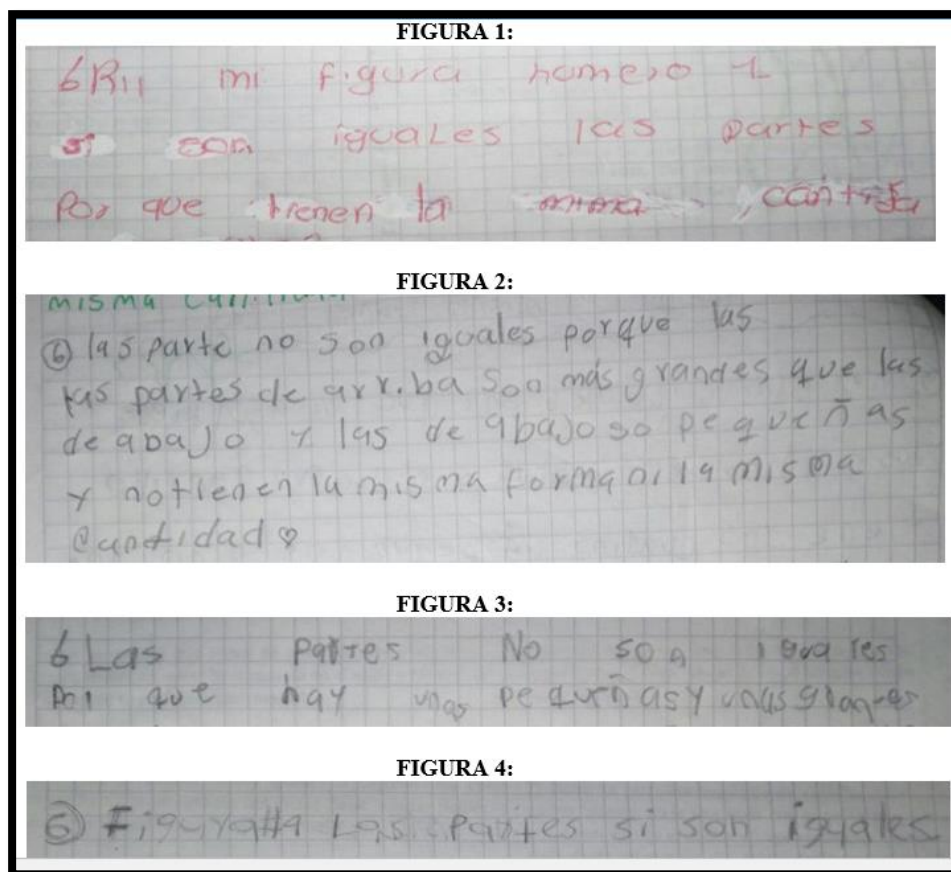 FIGURA 1:
6R// mi figura nomero 1
si son iguales las partes
Por que tienen la mima cantida
FIGURA 2:
misma
⑥ las parte no son iguales porque las
las partes de arriba son más grandes que las
de abajo y las de abajo so pequeñas
y no tienen la misma forma ni la misma
cantidad
FIGURA 3:
6 Las partes No son iguales
Por que hay unas pequeñas y unas grandes
FIGURA 4:
⑥ Figura #4 Las partes si son iguales